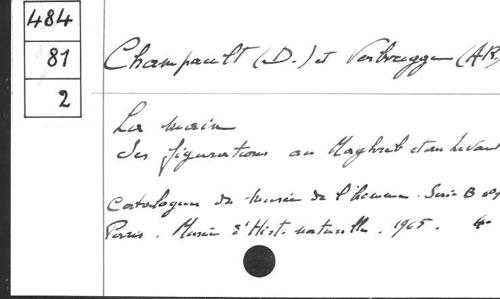 484
81
2
Champault (D.) et Verbrugge (AR)
La main
Ses figurations au Maghreb et au Levant
Catalogues du Musée de l'homme. Série B
Paris. Musée d'Hist. naturelle. 1965. 4°